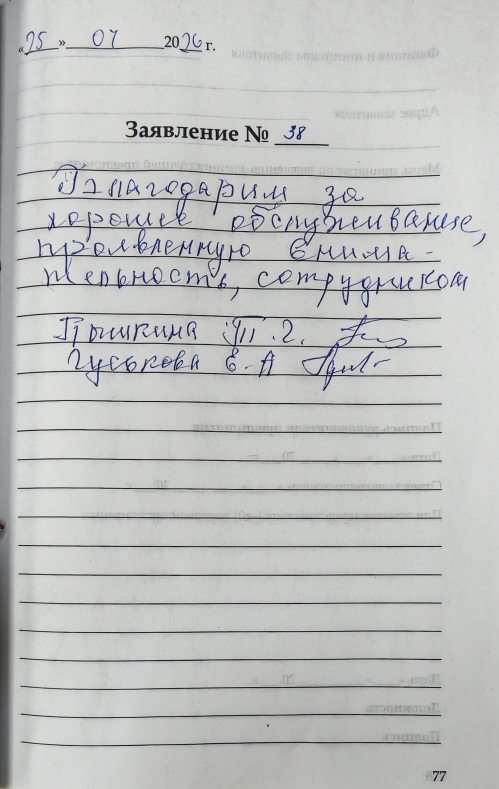 «25» 07 2026 г.
Заявление № 38
Благодарим за
хорошее обслуживание,
проявленную внима-
тельность, сотрудником
Пышкина Т. Г.
Гуськова Е. А
77